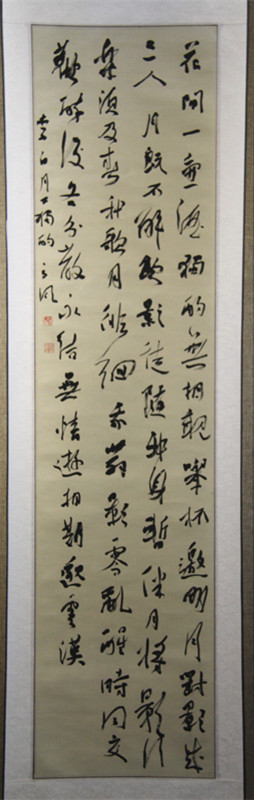 花間一壺酒獨酌無相親舉杯邀明月對影成
三人月既不解飲影徒隨我身暫伴月將影行
樂須及春我歌月徘徊我舞影零亂醒時同交
歡醉後各分散永結無情遊相期邈雲漢
李白月下獨酌